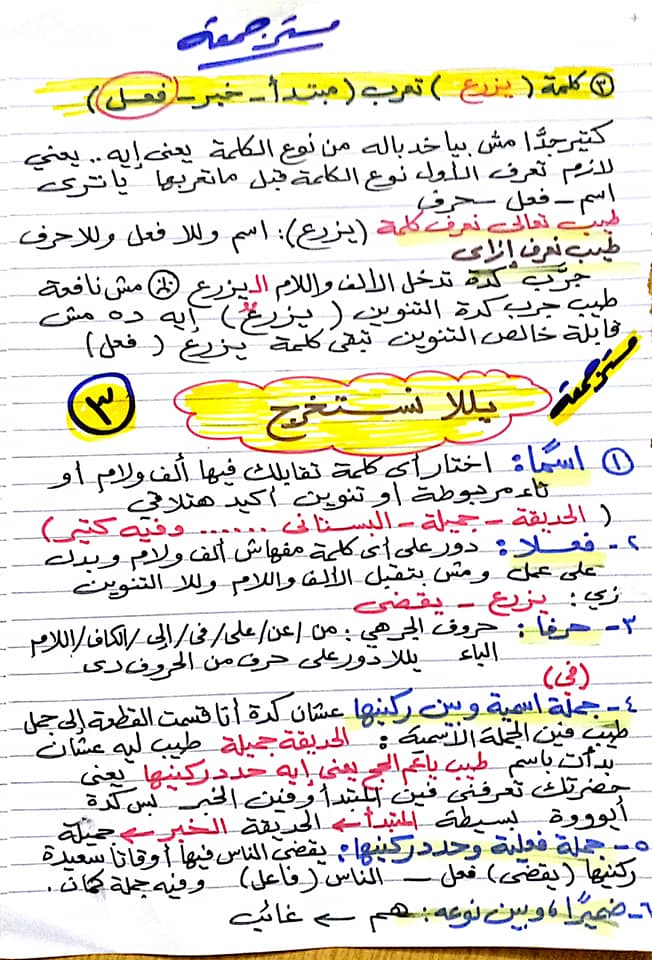 مستر جمعة
٣ كلمة ( يزرع ) تعرب ( مبتدأ - خبر - فعل )
كتير جدًّا مش بياخد باله من نوع الكلمة يعنى إيه .. يعني
لازم تعرف الأول نوع الكلمة قبل ماتعربها ياترى
اسم - فعل - حرف
طيب تعالى نعرف كلمة (يزرع): اسم وللا فعل وللا حرف
طيب نعرف إزاى
جرّب كدة تدخل الألف واللام اليزرع مش نافعة
طيب جرب كدة التنوين ( يزرعٌ ) إيه ده مش
قابلة خالص التنوين تبقى كلمة يزرع ( فعل )
مستر جمعة
٣ يللا نستخرج
١ اسمًا: اختار أى كلمة تقابلك فيها ألف ولام أو
تاء مربوطة أو تنوين أكيد هتلاقى
( الحديقة - جميلة - البستانى ...... وفيه كتير )
٢- فعلا: دور على أى كلمة مفهاش ألف ولام وبدل
على عمل ومش بتقبل الألف واللام وللا التنوين
زي: يزرع - يقضى
٣- حرفا: حروف الجر هي: من/عن/على/فى/إلى/الكاف/اللام
الباء يللا دور على حرف من الحروف دى
(فى)
٤- جملة اسمية وبين ركنيها عشان كدة أنا قسمت القطعة إلى جمل
طيب فين الجملة الاسمية: الحديقة جميلة طيب ليه عشان
بدأت باسم طيب ياعم الحج يعنى إيه حدد ركنيها يعنى
حضرتك تعرفنى فين المبتدأ وفين الخبر بس كدة
أيوووة بسيطة المبتدأ ← الحديقة الخبر ← جميلة
٥- جملة فعلية وحدد ركنيها: يقضى الناس فيها أوقاتا سعيدة
ركنيها (يقضى) فعل - الناس (فاعل) وفيه جملة كمان.
٦- ضميرًا، وبين نوعه: هم ← غائب